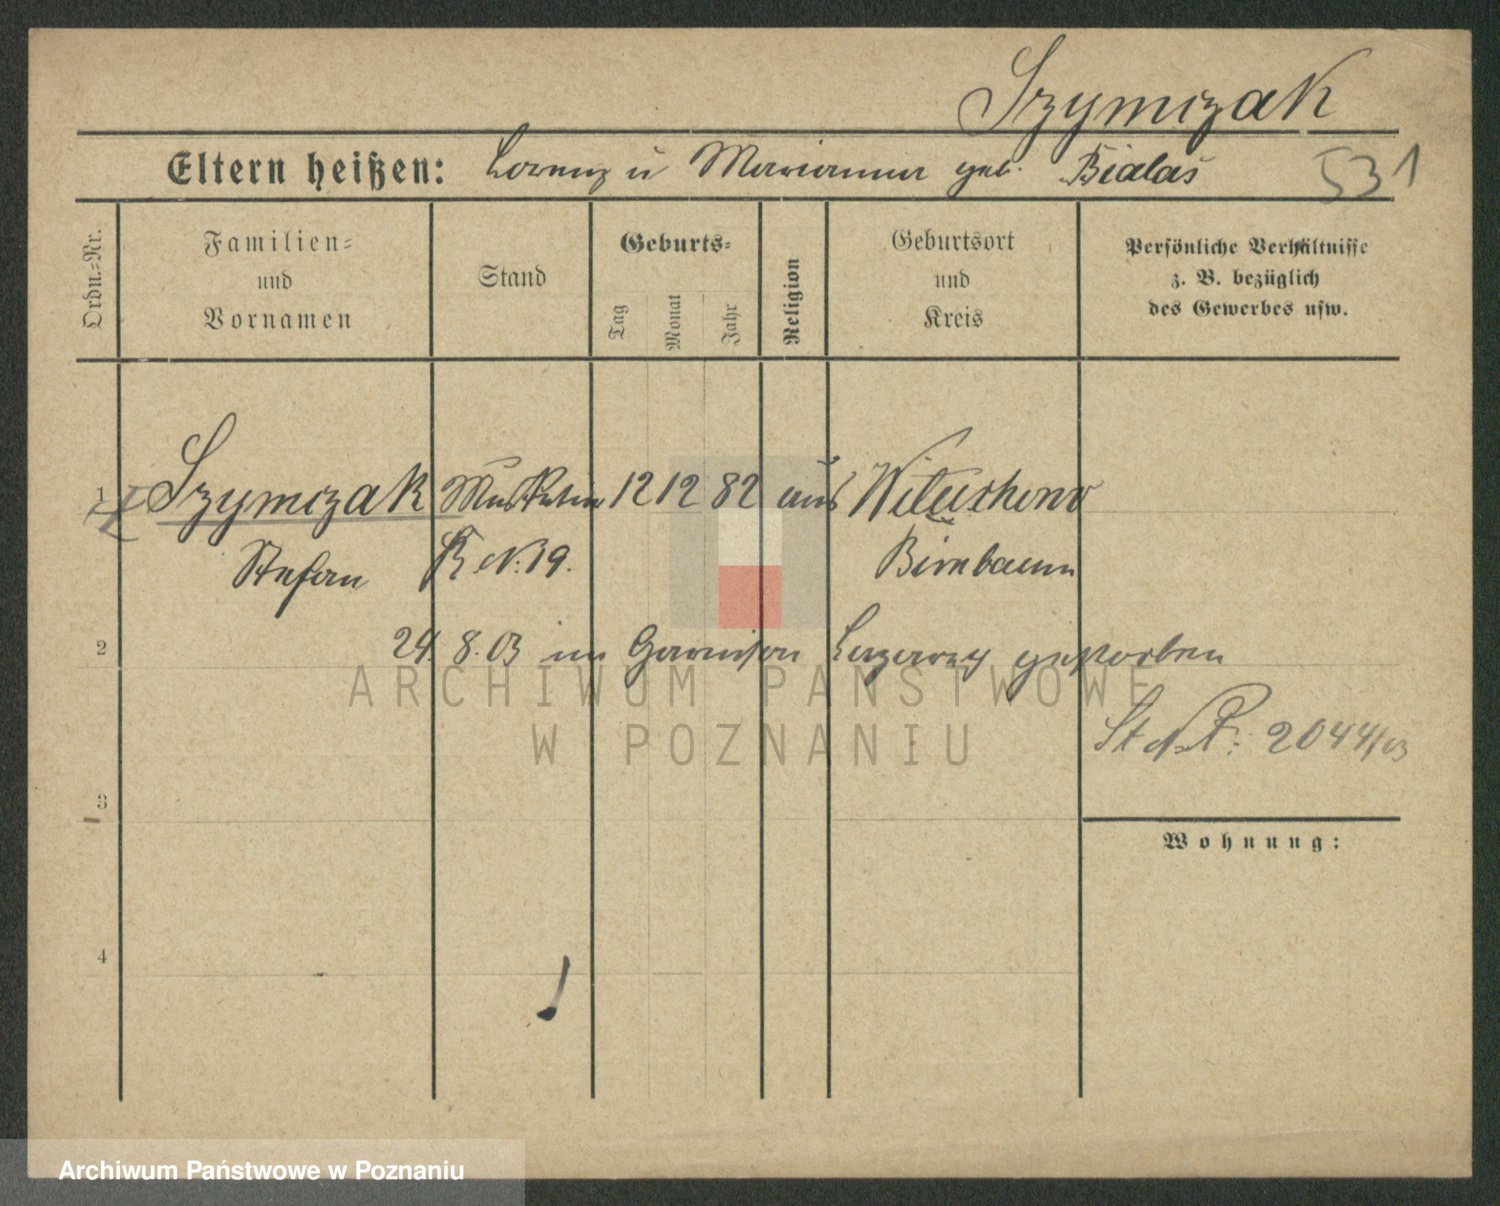 Szymczak
Eltern heißen: Lorenz u Marianna geb. Bialas
531
Ordn.-Nr.
Familien-
und
Vornamen
Stand
Geburts-
Tag
Monat
Jahr
Religion
Geburtsort
und
Kreis
Persönliche Verhältnisse
z. B. bezüglich
des Gewerbes usw.
1 Szymczak Musketier 12 12 82 aus Wituchowo
Stefan R No. 19. Birnbaum
2 24. 8. 03 im Garnison Lazareth gestorben
ARCHIWUM PAŃSTWOWE
W POZNANIU
2044/03
3
Wohnung:
4
Archiwum Państwowe w Poznaniu